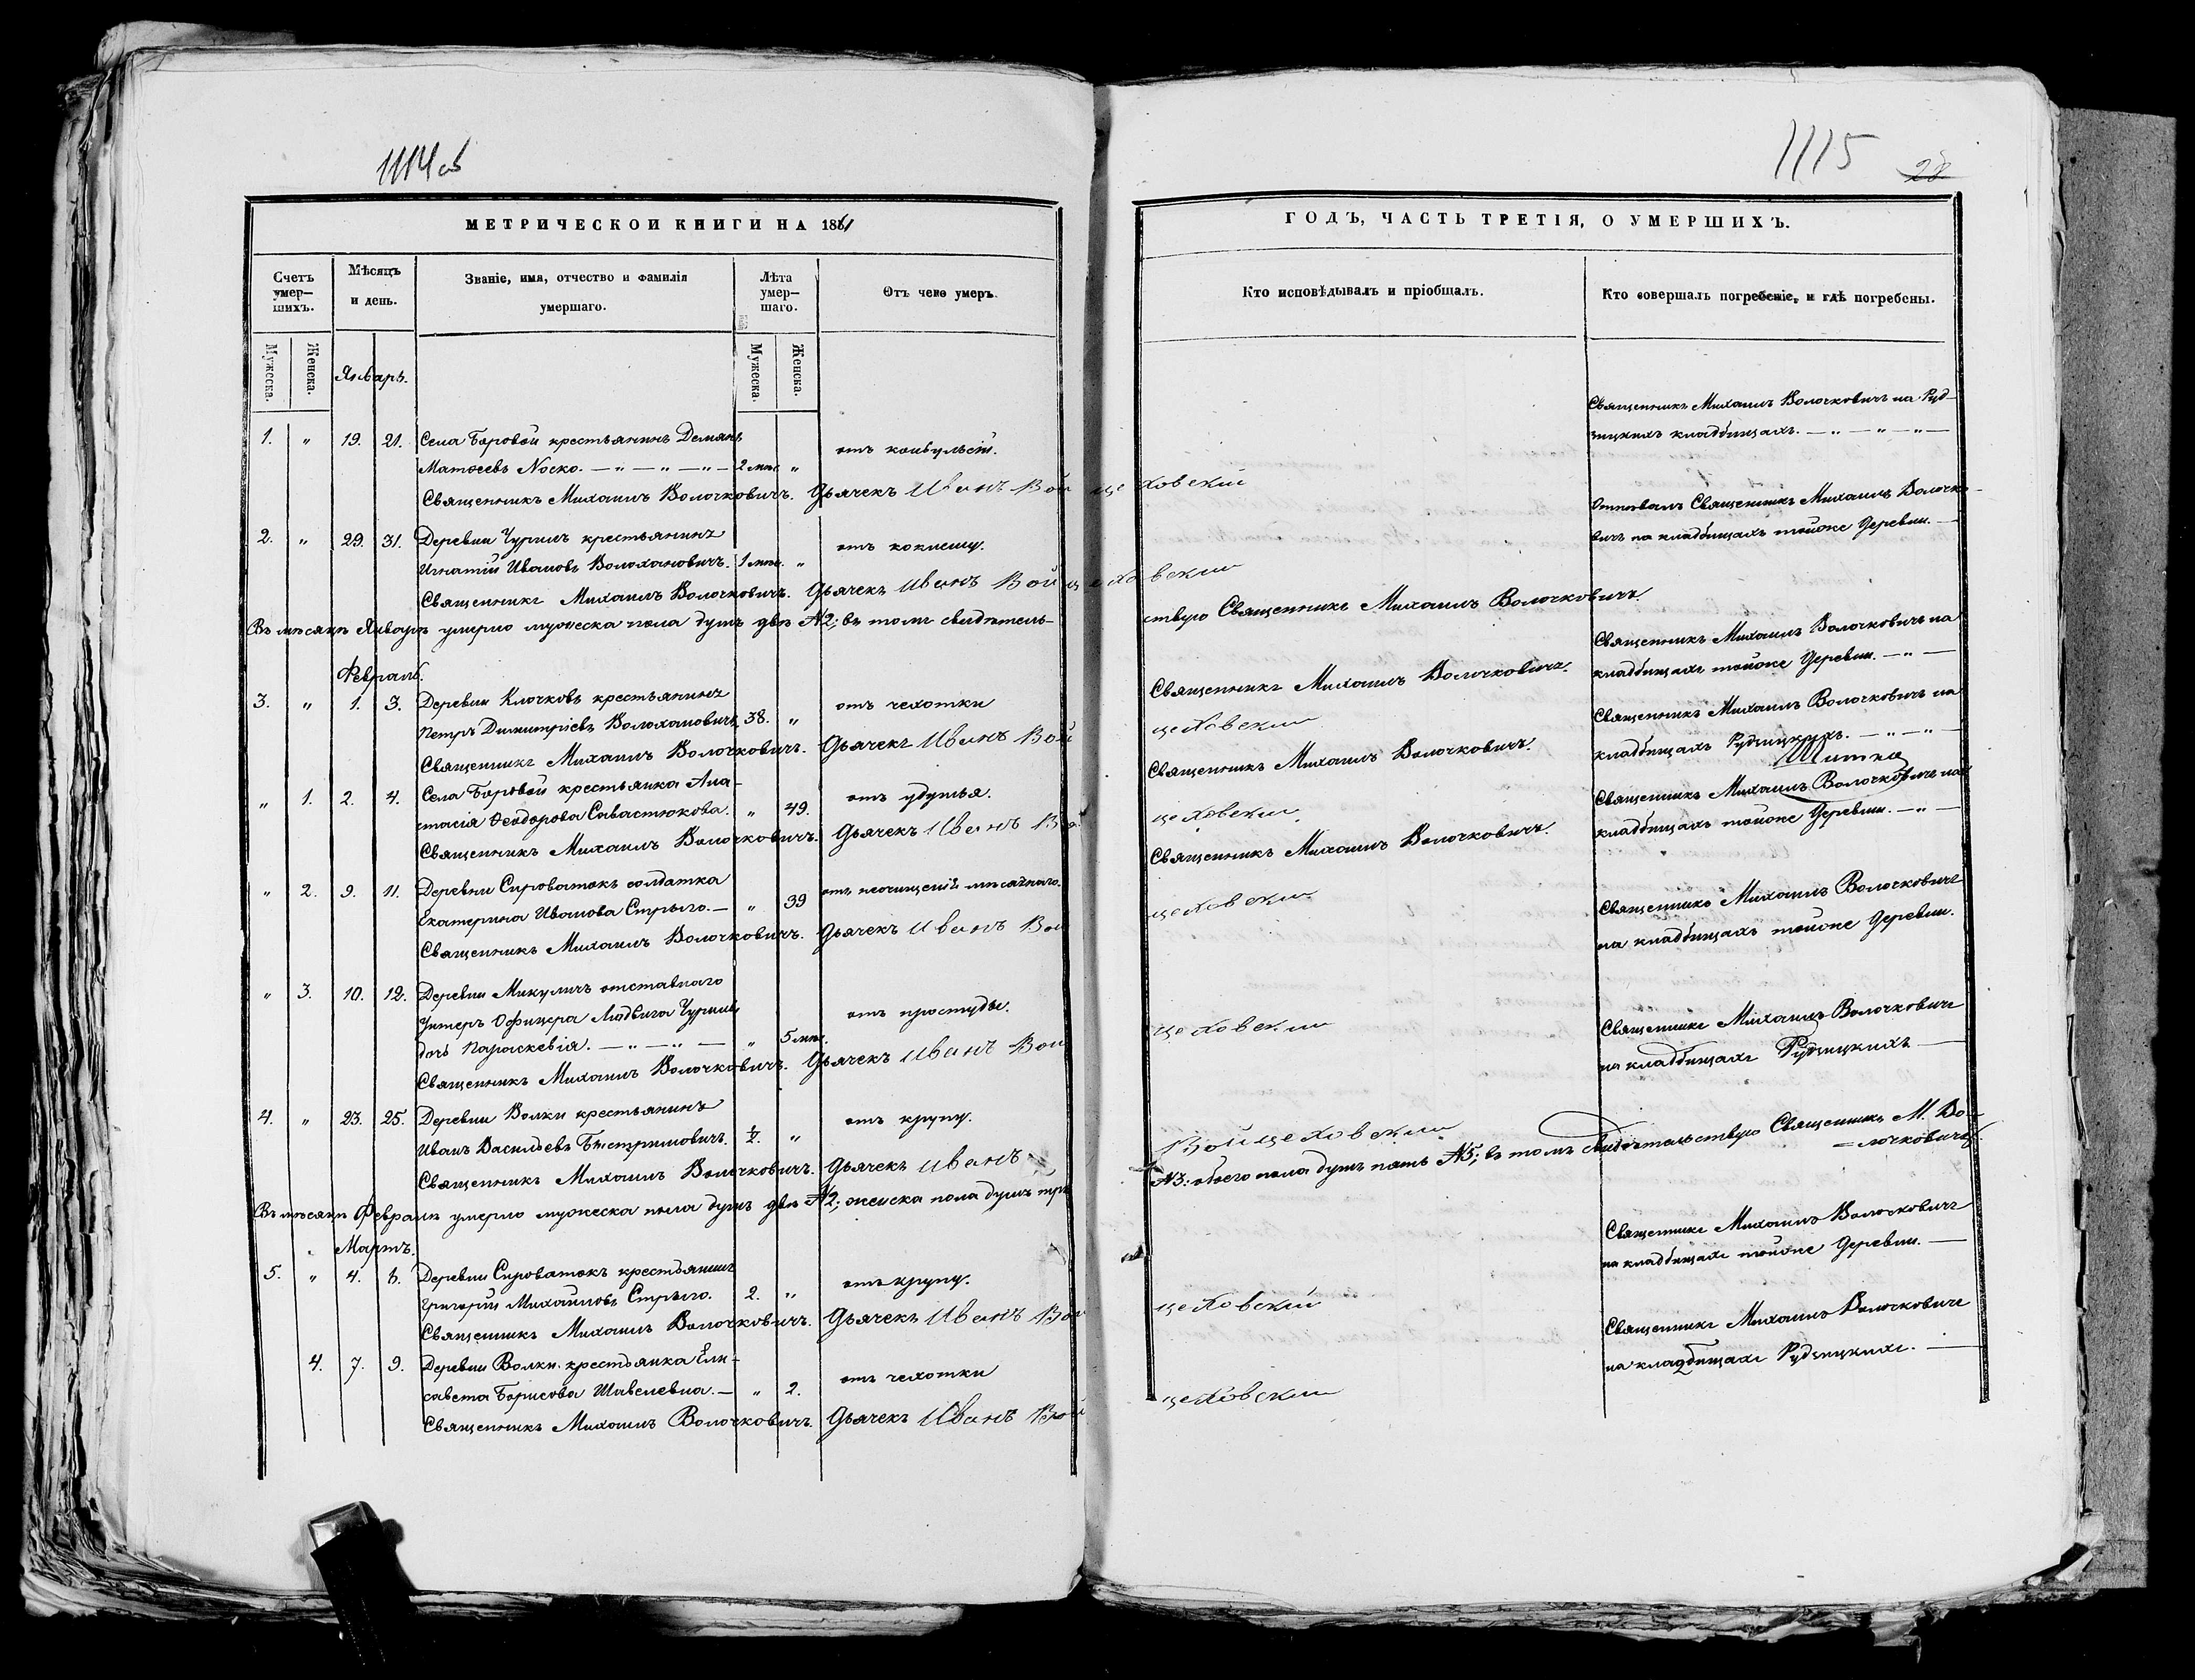 1114 об
МЕТРИЧЕСКОЙ КНИГИ НА 1861
Счетъ умер-шихъ.
Мѣсяцъ и день.
Званіе, имя, отчество и фамилія умершаго.
Лѣта умер-шаго.
Отъ чего умеръ.
Мужеска.
Женска.
Мужеска.
Женска.
Январь.
1. " 19. 21. Села Боровой крестьянинъ Демянъ
Матѳеевъ Носко. — " — " — " — 2 мѣс. " отъ конвульсій.
Священникъ Михаилъ Волочковичъ. Дьячекъ Иванъ Вой
2. " 29. 31. Деревни Чурилъ крестьянинъ
Игнатій Ивановъ Волоханович. 1 мѣс. " отъ коклешу.
Священникъ Михаилъ Волочковичъ. Дьячекъ Иванъ Вой
Въ мѣсяцѣ Январѣ умерло мужеска пола душъ двѣ №2; въ томъ свидѣтель-
Февраль.
3. " 1. 3. Деревни Клочковъ крестьянинъ
Петръ Димитріевъ Волоханович 38. " отъ чехотки
Священникъ Михаилъ Волочковичъ. Дьячекъ Иванъ Вой
" 1. 2. 4. Села Боровой крестьянка Ана-
стасія Ѳеодорова Савастюкова. " 49. отъ удутья.
Священникъ Михаилъ Волочковичъ. Дьячекъ Иванъ Вой
" 2. 9. 11. Деревни Сироватокъ солдатка
Екатерина Иванова Стрыго. — " 39 отъ неочищеній мѣсячнаго.
Священникъ Михаилъ Волочковичъ. Дьячекъ Иванъ Вой
" 3. 10. 12. Деревни Микуличъ отставнаго
Унтеръ Офицера Людвига Чурила
дочь Параскевія. — " — " — " 5 мѣс. отъ простуды.
Священникъ Михаилъ Волочковичъ. Дьячекъ Иванъ Вой
4. " 23. 25. Деревни Волки крестьянинъ
Иванъ Васильевъ Быстримович. ½. " отъ крупу.
Священникъ Михаилъ Волочковичъ. Дьячекъ Иванъ
Въ мѣсяцѣ Февралѣ умерло мужеска пола душъ двѣ №2; женска пола душъ три
Мартъ.
5. " 4. 6. Деревни Сироватокъ крестьянинъ
Григорій Михайловъ Стрыго. 2. " отъ крупу.
Священникъ Михаилъ Волочковичъ. Дьячекъ Иванъ Вой
4. 7. 9. Деревни Волки крестьянка Ели-
савета Борисова Шавелевна. — " 2. отъ чехотки
Священникъ Михаилъ Волочковичъ. Дьячекъ Иванъ Вой
1115 28
ГОДЪ, ЧАСТЬ ТРЕТІЯ, О УМЕРШИХЪ.
Кто исповѣдывалъ и пріобщалъ.
Кто совершалъ погребеніе, и гдѣ погребены.
Священникъ Михаилъ Волочковичъ на Руд-
зицкихъ кладбищахъ. — " — " — " —
цеховскій
Отпѣвалъ Священникъ Михаилъ Волочко-
вичъ на кладбищахъ тойже Деревни. —
цеховскій
ствую Священникъ Михаилъ Волочковичъ.
Священникъ Михаилъ Волочковичъ на
кладбищахъ тойже Деревни. — " —
Священникъ Михаилъ Волочковичъ.
цеховскій
Священникъ Михаилъ Волочковичъ на
кладбищахъ Рудзицкихъ. — " — " —
Священникъ Михаилъ Волочковичъ.
цеховскій
Священникъ Михаилъ Волочковичъ на
кладбищахъ тойже Деревни. — " —
Священникъ Михаилъ Волочковичъ.
цеховскій
Священникъ Михаилъ Волочковичъ
на кладбищахъ тойже Деревни.
цеховскій
Священникъ Михаилъ Волочковичъ
на кладбищахъ Рудзицкихъ —
Войцеховскій
№3: обоего пола душъ пять №5; въ томъ свидѣтельствую Священникъ М. Во-
=лочковичъ.
Священникъ Михаилъ Волочковичъ
на кладбищахъ тойже Деревни. —
цеховскій
Священникъ Михаилъ Волочковичъ
на кладбищахъ Рудзицкихъ. —
цеховскій